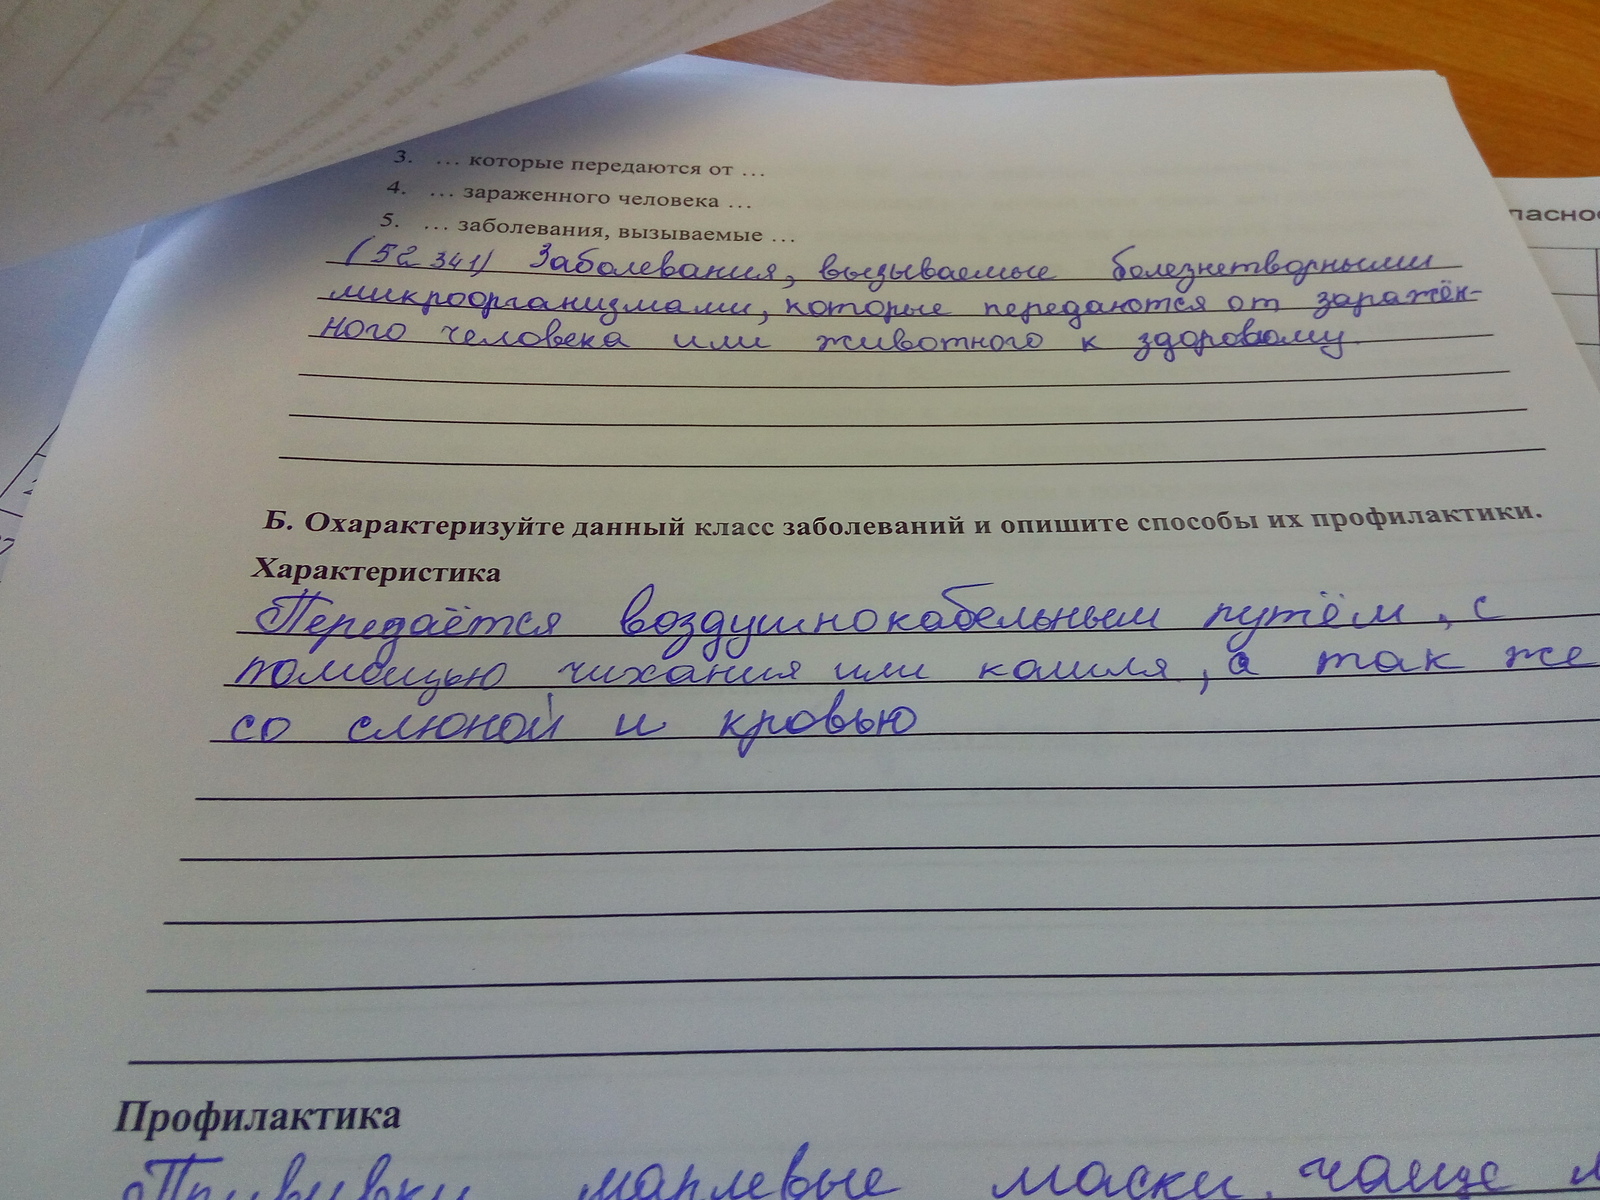 3. … которые передаются от …
4. … зараженного человека …
5. … заболевания, вызываемые …
(52 341) Заболевания, вызываемые болезнетворными
микроорганизмами, которые передаются от заражён-
ного человека или животного к здоровому
Б. Охарактеризуйте данный класс заболеваний и опишите способы их профилактики.
Характеристика
Передаётся воздушнокабельным путём, с
помощью чихания или кашля, а так же
со слюной и кровью
Профилактика
Прививки марлевые маски, чаще